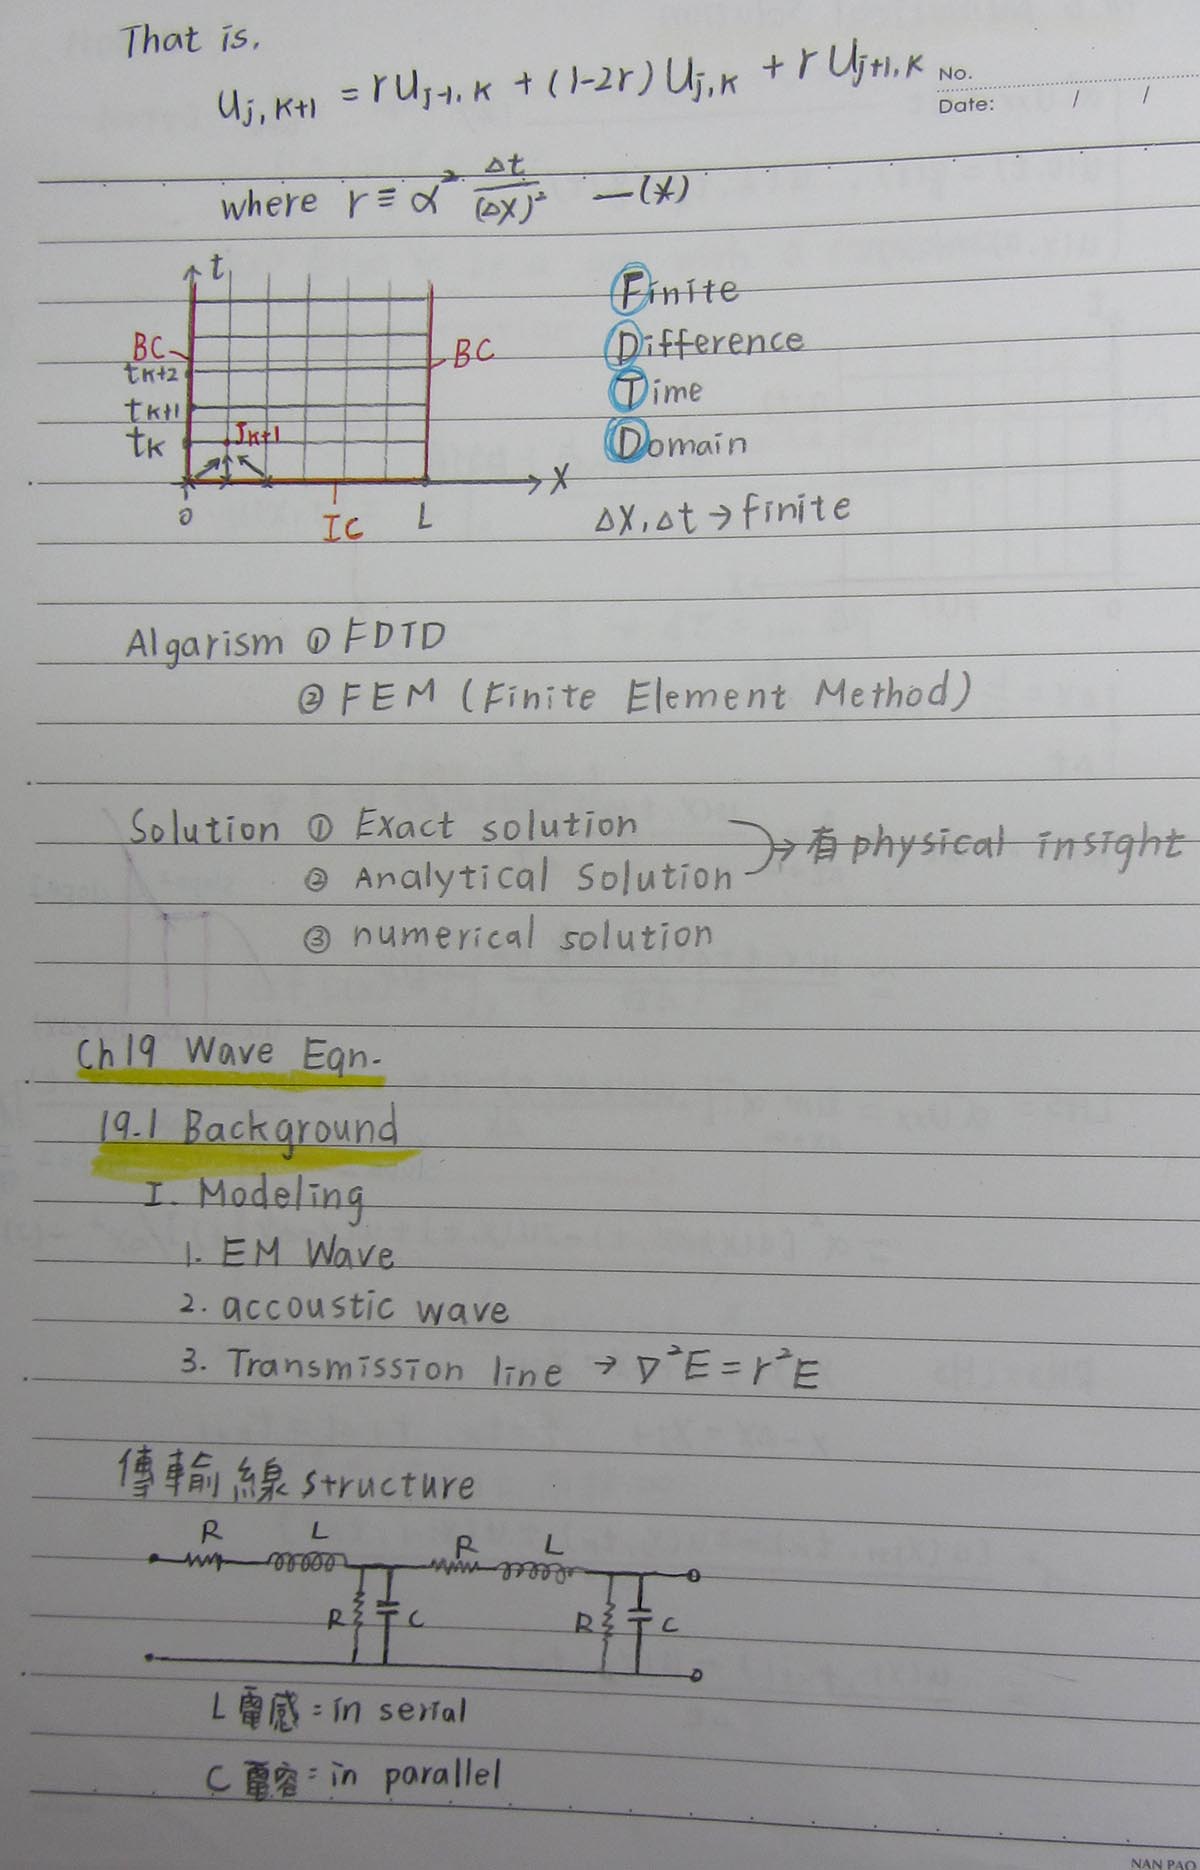 That is,
U_{j,K+1} = rU_{j-1,K} + (1-2r) U_{j,K} + rU_{j+1,K}
No.
Date: / /
where r ≡ α² Δt/(ΔX)² —(*)
t
Finite
BC
BC
Difference
t_{K+2}
Time
t_{K+1}
t_K
J_{K+1}
Domain
X
0
IC
L
ΔX, Δt → finite
Algarism ① FDTD
② FEM (Finite Element Method)
Solution ① Exact solution
→ 有 physical insight
② Analytical Solution
③ numerical solution
Ch19 Wave Eqn.
19.1 Background
I. Modeling
1. EM Wave
2. accoustic wave
3. Transmission line → ∇²E = r²E
傳輸線 structure
R L R L
R C R C
L 電感 = in serial
C 電容 = in parallel
NAN PAO